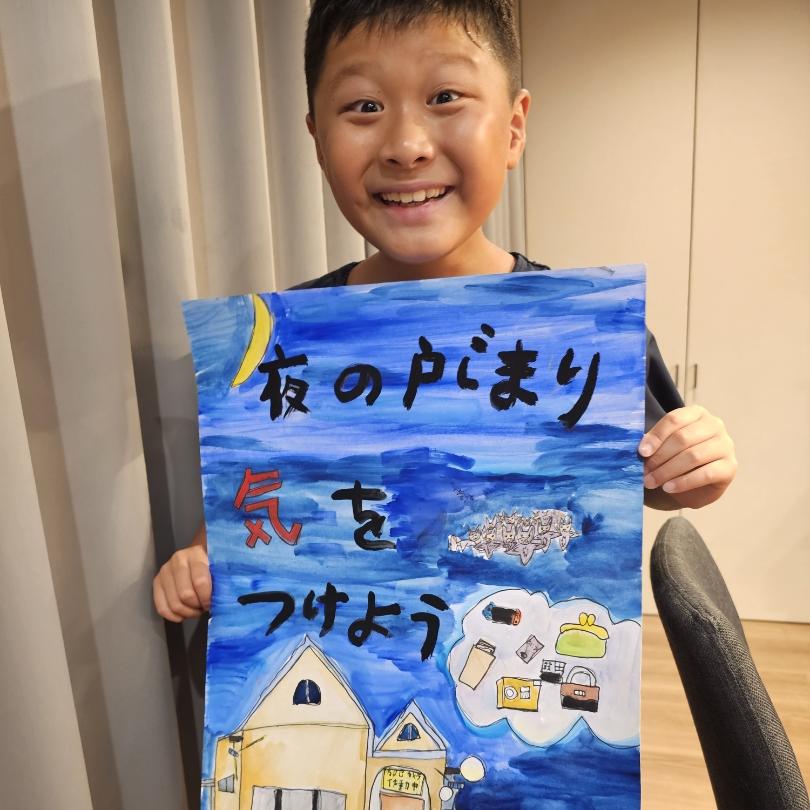 夜の戸じまり
気を
つけよう
作動中